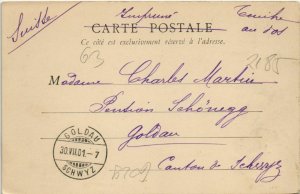 Suisse
Imprimé
Timbre
au dos
CARTE POSTALE
Ce côté est exclusivement réservé à l'adresse.
63
2185
Madame Charles Martin
Pension Schönegg
Goldau
Canton de Schwyz
GOLDAU
30.VII.01.-7
SCHWYZ